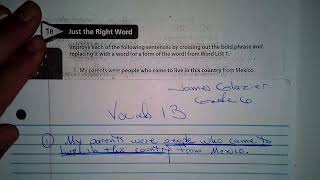 1B Just the Right Word
Improve each of the following sentences by crossing out the bold phrase and
replacing it with a word (or a form of the word) from Word List 1.
1. My parents were people who came to live in this country from Mexico.
James
Vocab 1B
① My parents were people who came to
live in this country from Mexico.